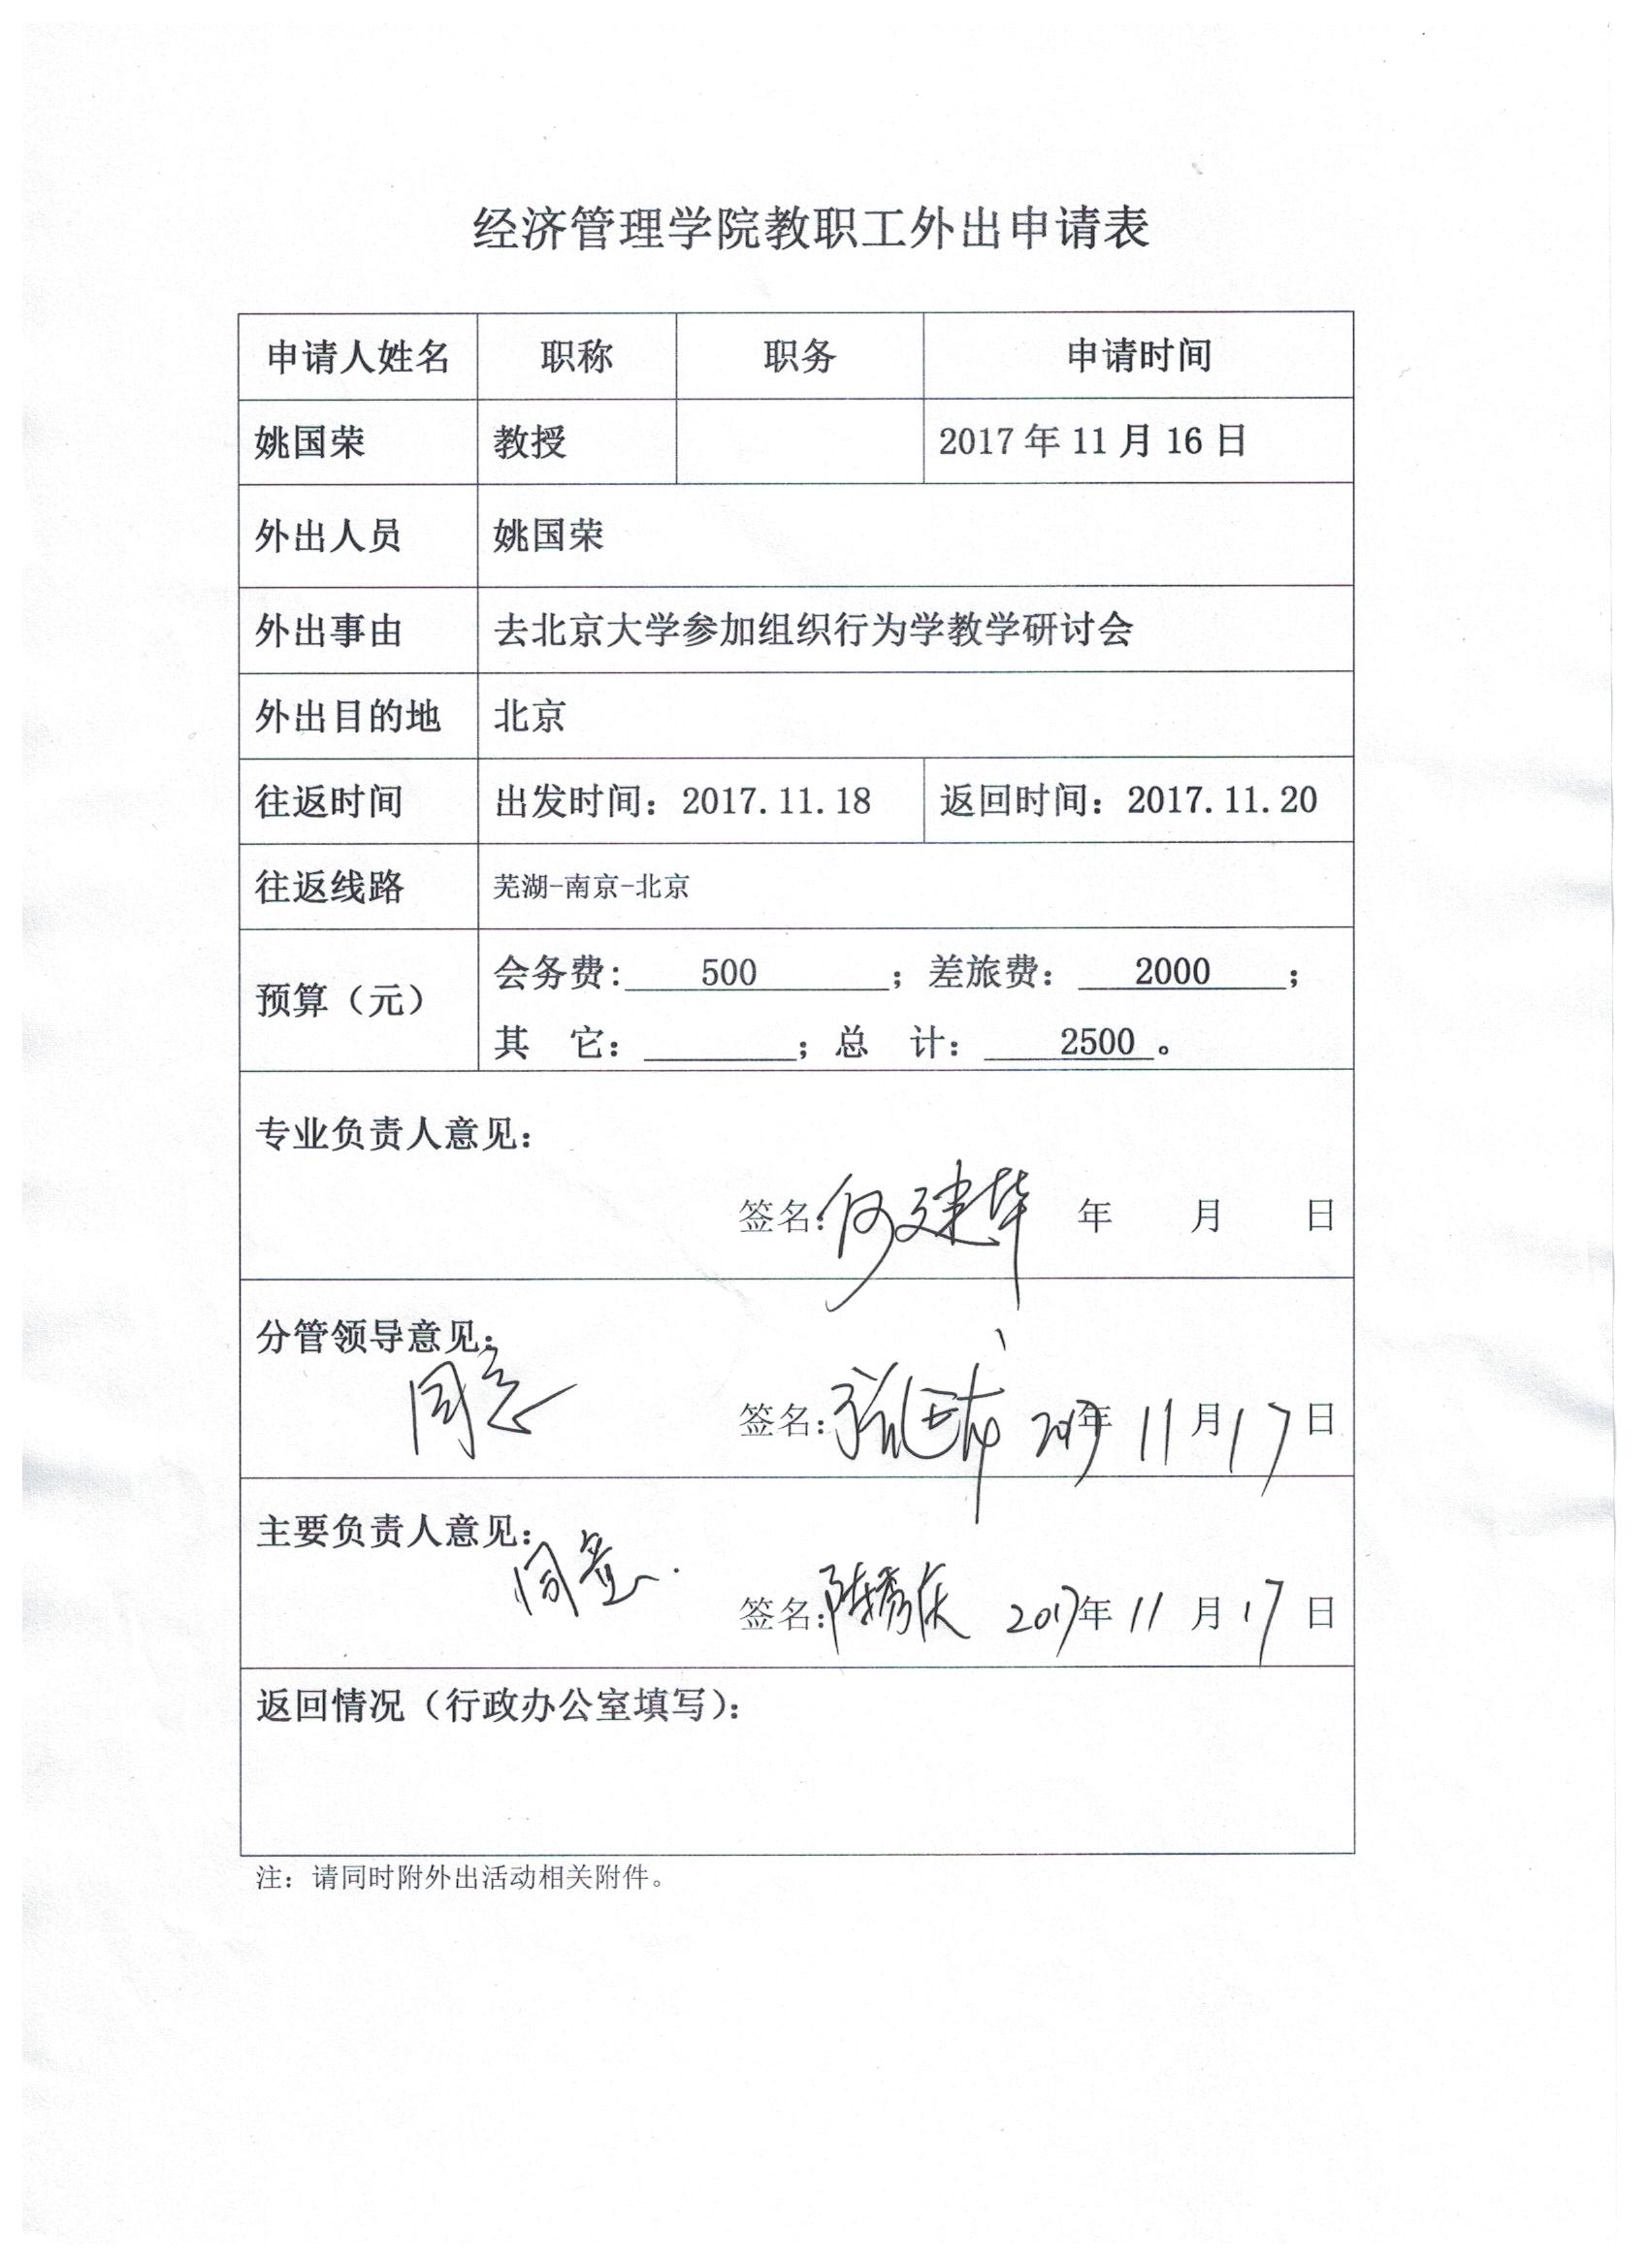 经济管理学院教职工外出申请表
申请人姓名 职称 职务 申请时间
姚国荣 教授 2017年11月16日
外出人员 姚国荣
外出事由 去北京大学参加组织行为学教学研讨会
外出目的地 北京
往返时间 出发时间：2017.11.18 返回时间：2017.11.20
往返线路 芜湖-南京-北京
预算（元） 会务费：500；差旅费：2000；
其 它：；总 计：2500。
专业负责人意见：
签名：何建华 年 月 日
分管领导意见：
同意
签名： 2017年11月17日
主要负责人意见：
同意.
签名： 2017年11月17日
返回情况（行政办公室填写）：
注：请同时附外出活动相关附件。